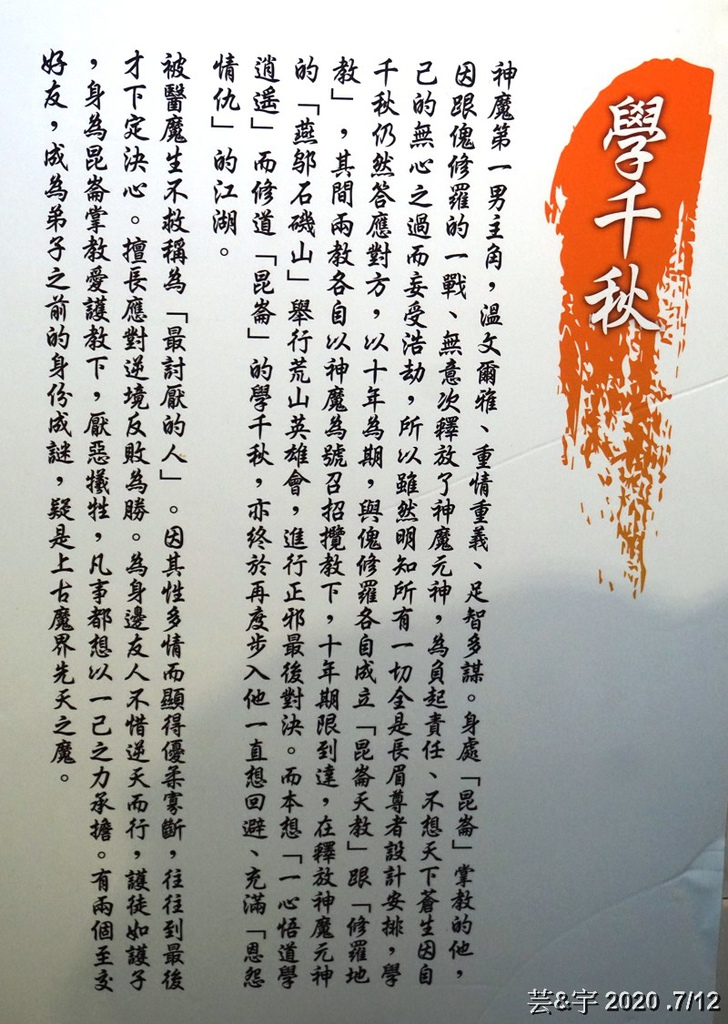 學千秋
神魔第一男主角，溫文爾雅、重情重義、足智多謀。身處「昆崙」掌教的他，
因跟傀修羅的一戰、無意次釋放了神魔元神，為負起責任、不想天下蒼生因自
己的無心之過而妄受浩劫，所以雖然明知所有一切全是長眉尊者設計安排，學
千秋仍然答應對方，以十年為期，與傀修羅各自成立「昆崙天教」跟「修羅地
教」，其間兩教各自以神魔為號召招攬教下，十年期限到達，在釋放神魔元神
的「燕鄔石磯山」舉行荒山英雄會，進行正邪最後對決。而本想「一心悟道學
逍遥」而修道「昆崙」的學千秋，亦終於再度步入他一直想回避、充滿「恩怨
情仇」的江湖。
被醫魔生不救稱為「最討厭的人」。因其性多情而顯得優柔寡斷，往往到最後
才下定決心。擅長應對逆境反敗為勝。為身邊友人不惜逆天而行，護徒如護子
，身為昆崙掌教愛護教下，厭惡犧牲，凡事都想以一己之力承擔。有兩個至交
好友，成為弟子之前的身份成謎，疑是上古魔界先天之魔。
芸&宇 2020 .7/12